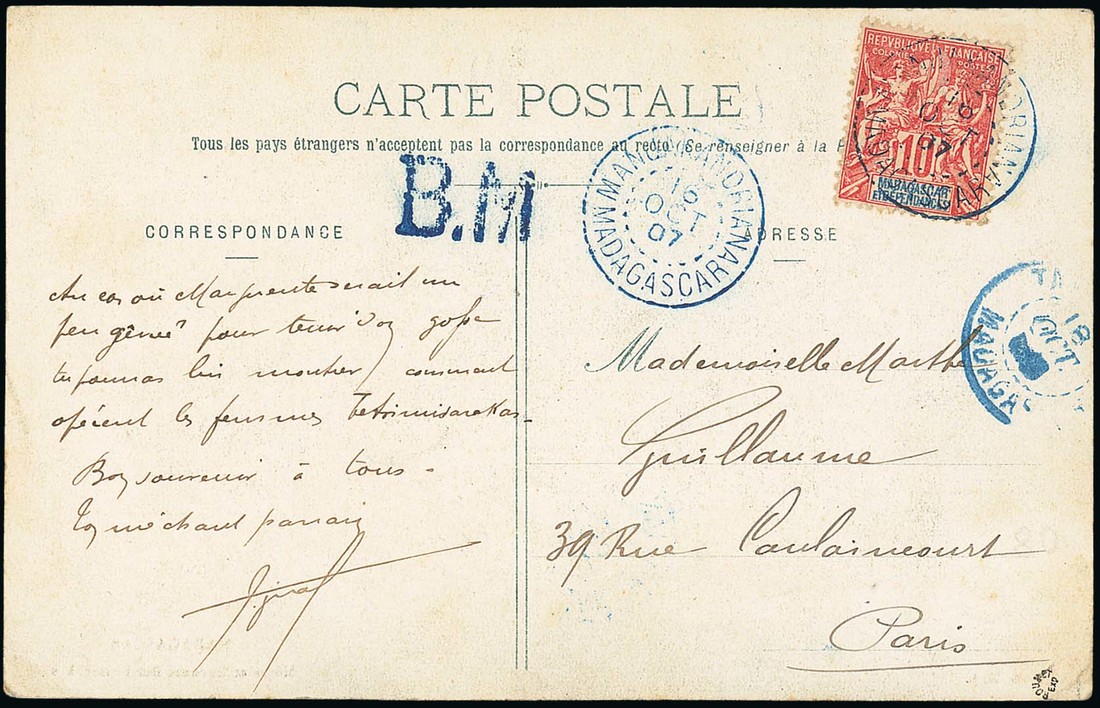 CARTE POSTALE
Tous les pays étrangers n'acceptent pas la correspondance au recto (Se renseigner à la P
REPVBLIQVE FRANÇAISE
COLONIES POSTES
10
MADAGASCAR
ET DÉPENDANCES
B.M
MANGARANDRIANA
16
OCT
07
MADAGASCAR
CORRESPONDANCE
ADRESSE
Au cas où Marguerite serait un
peu gênée pour tenir son gosse
tu pourras lui montrer comment
opèrent les femmes Betsimisarakas
Bon souvenir à tous.
Ton méchant parrain
TA
18
OCT
MADAGAS
Mademoiselle Marthe
Guillaume
39 Rue Caulaincourt
Paris